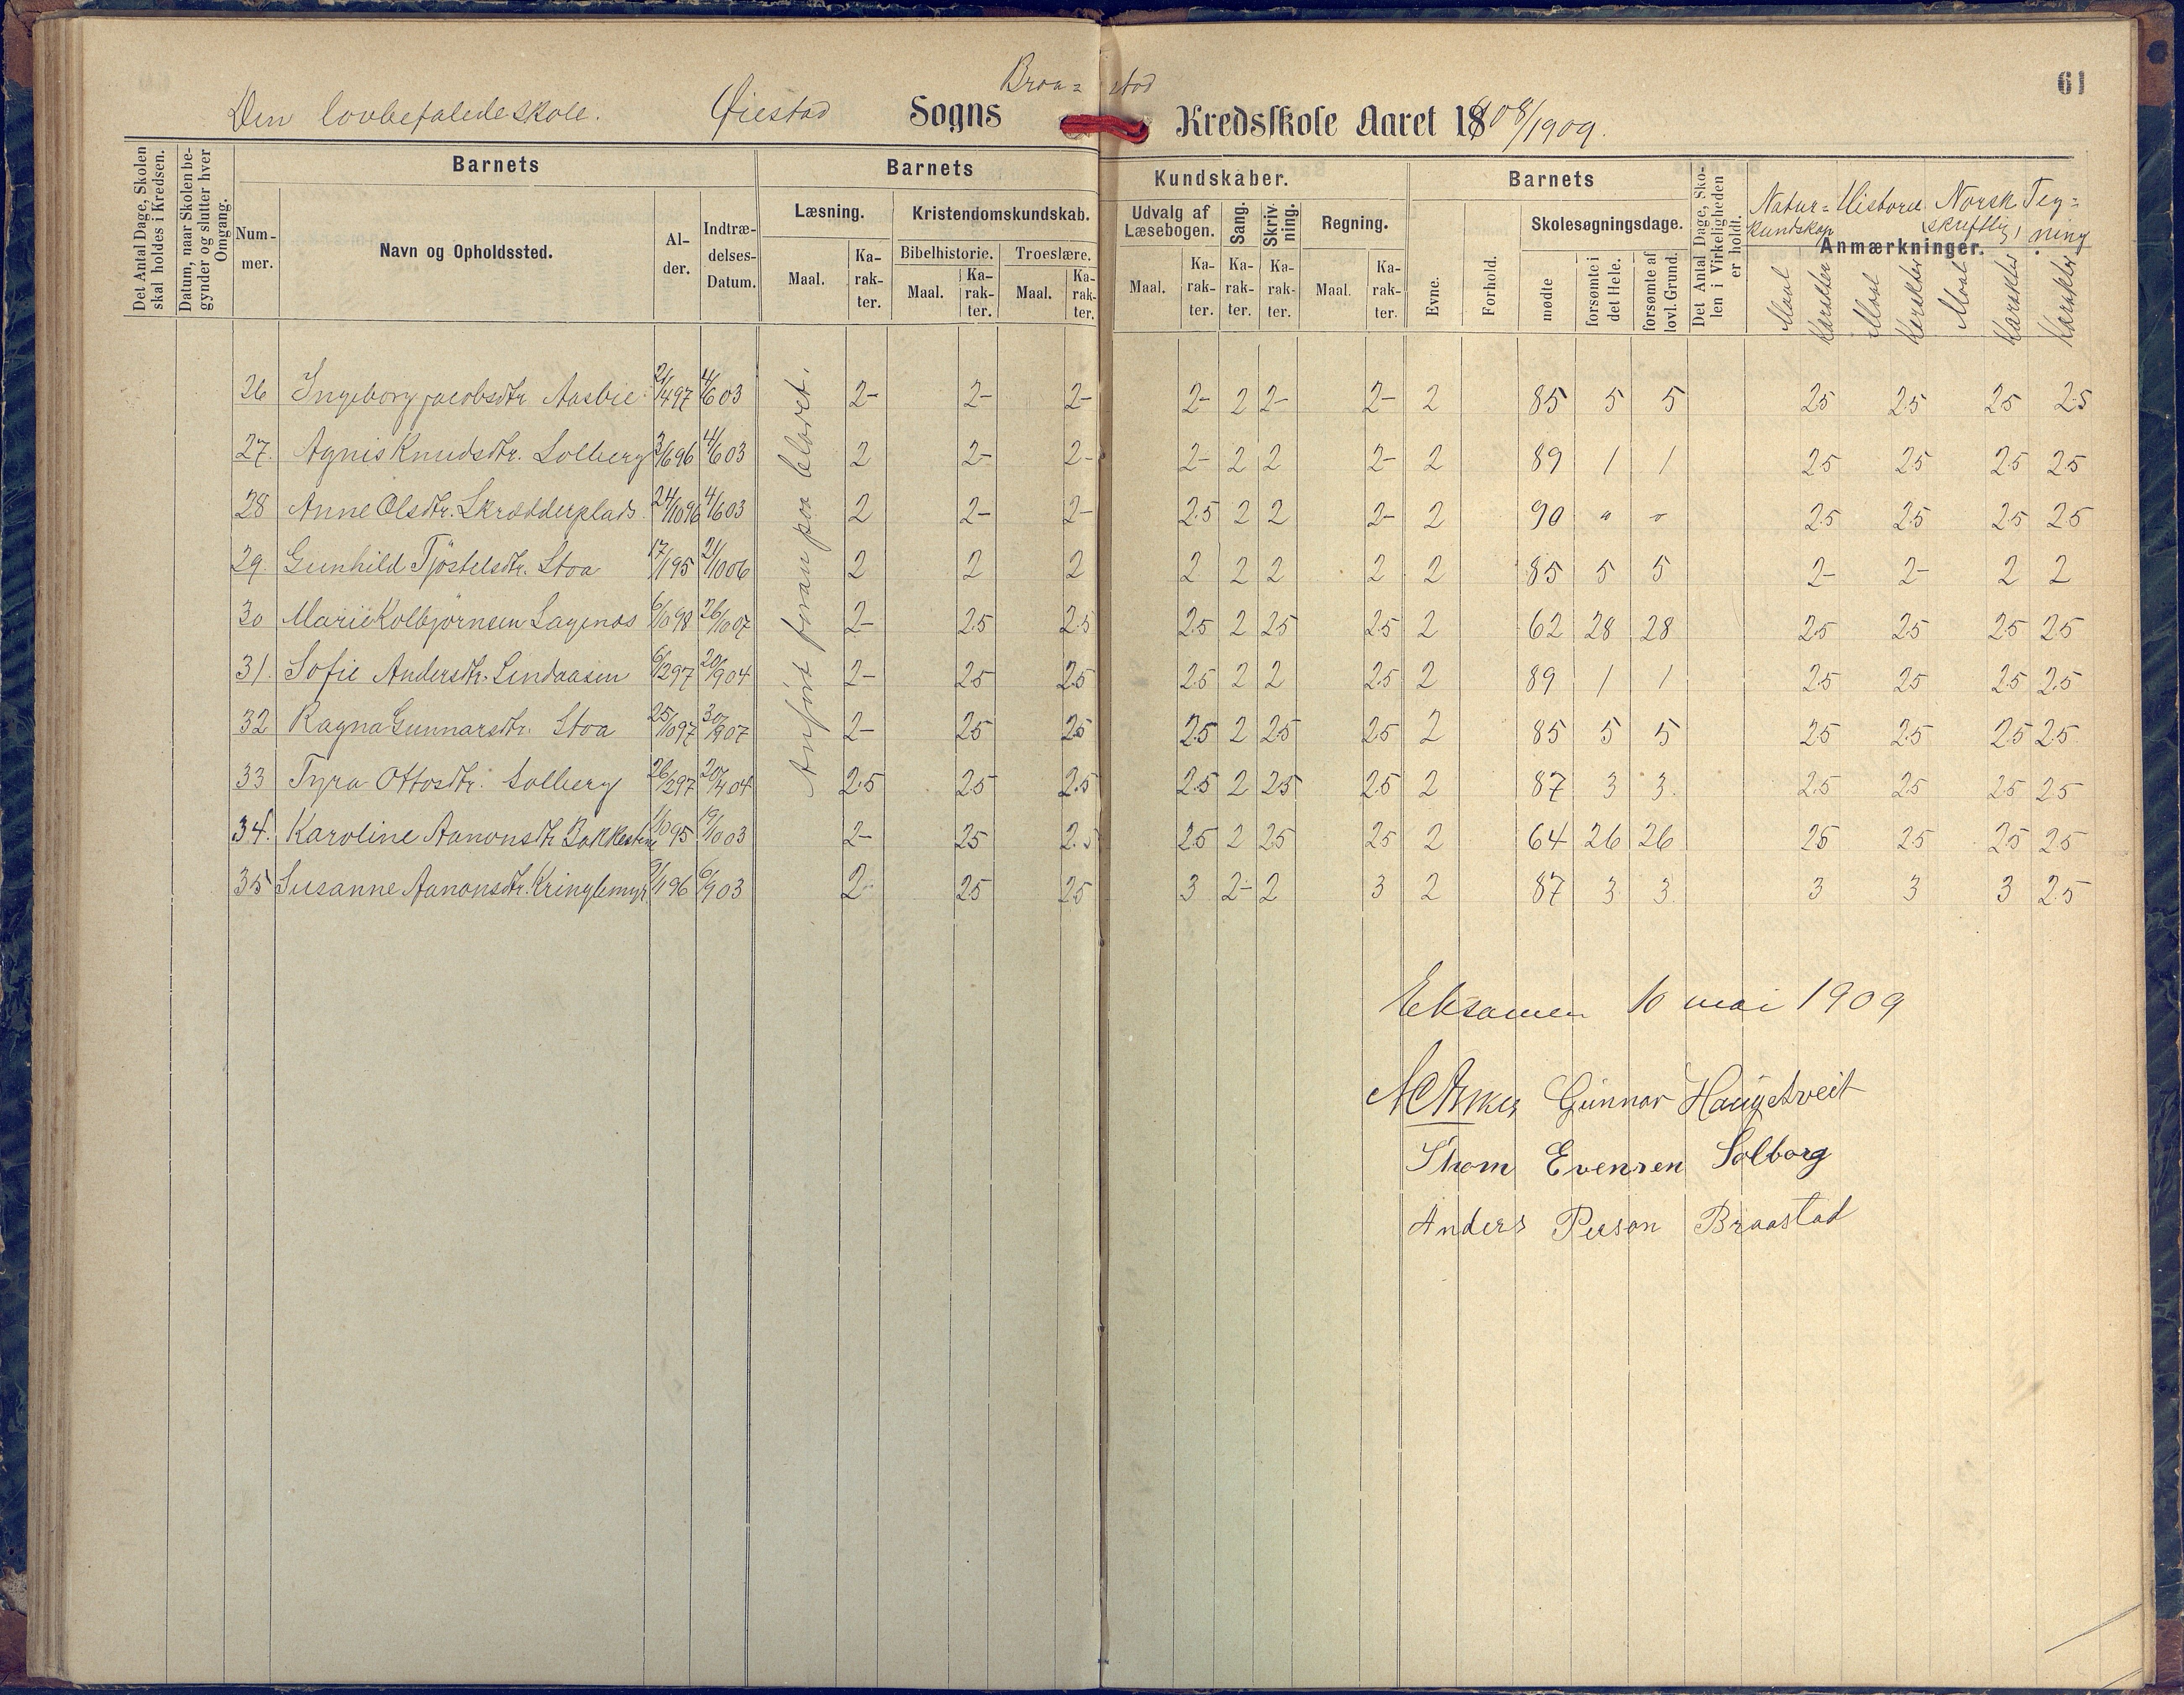 61
Den lovbefalede Skole. Øiestad Sogns Braa= stad Kredsskole Aaret 1908/1909.
Det Antal Dage, Skolen skal holdes i Kredsen.
Datum, naar Skolen begynder og slutter hver Omgang.
Barnets
Num-mer.
Navn og Opholdssted.
Al-der.
Indtræ-delses-Datum.
Barnets Kundskaber.
Læsning. Maal. Ka-rak-ter.
Kristendomskundskab.
Bibelhistorie. Maal. Ka-rak-ter.
Troeslære. Maal. Ka-rak-ter.
Udvalg af Læsebogen. Maal. Ka-rak-ter.
Sang. Ka-rak-ter.
Skriv-ning. Ka-rak-ter.
Regning. Maal. Ka-rak-ter.
Barnets
Evne.
Forhold.
Skolesøgningsdage.
mødte
forsømte i det Hele.
forsømte af lovl. Grund.
Det Antal Dage, Sko-len i Virkeligheden er holdt.
Anmærkninger.
Natur=kundskap Maal Karakter
Historie Maal Karakter
Norsk skriftlig Maal Karakter
Teg=ning Karakter
Anført foran paa bladet.
26 Ingeborg Jacobsdtr Aasbie 21/4 97 4/6 03 2- 2- 2- 2- 2 2- 2- 2 85 5 5 2.5 2.5 2.5 2.5
27. Agnis Knudsdtr. Solberg 3/6 96 4/6 03 2 2- 2- 2- 2 2 2- 2 89 1 1 2.5 2.5 2.5 2.5
28 Anne Olsdtr. Skrædderplads 24/10 96 4/6 03 2 2- 2- 2.5 2 2 2- 2 90 " " 2.5 2.5 2.5 2.5
29. Gunhild Tjøstelsdtr. Stoa 17/1 95 21/10 06 2 2 2 2 2 2 2 2 85 5 5 2- 2- 2 2
30 Marie Kolbjørnsen Sagenes 6/10 98 26/10 07 2- 2.5 2.5 2.5 2 2.5 2.5 2 62 28 28 2.5 2.5 2.5 2.5
31. Sofie Andersdtr. Lindaasen 6/2 97 20/9 04 2- 2.5 2.5 2.5 2 2 2.5 2 89 1 1 2.5 2.5 2.5 2.5
32 Ragna Gunnarsdtr. Stoa 25/10 97 30/9 07 2- 2.5 2.5 2.5 2 2.5 2.5 2 85 5 5 2.5 2.5 2.5 2.5
33 Tyra Ottosdtr. Solberg 26/2 97 20/4 04 2.5 2.5 2.5 2.5 2 2.5 2.5 2 87 3 3. 2.5 2.5 2.5 2.5
34. Karoline Aanonsdtr Bakkesten 1/10 95 19/10 03 2- 2.5 2.5 2.5 2 2.5 2.5 2 64 26 26 2.5 2.5 2.5 2.5
35 Susanne Aanonsdtr. Kringlemyr 9/1 96 6/9 03 2- 2.5 2.5 3 2- 2 3 2 87 3 3. 3 3 3 2.5
Eksamen 10 mai 1909
Gunnar Haugetveit
Thom Evensen Solborg
Anders Person Braastad